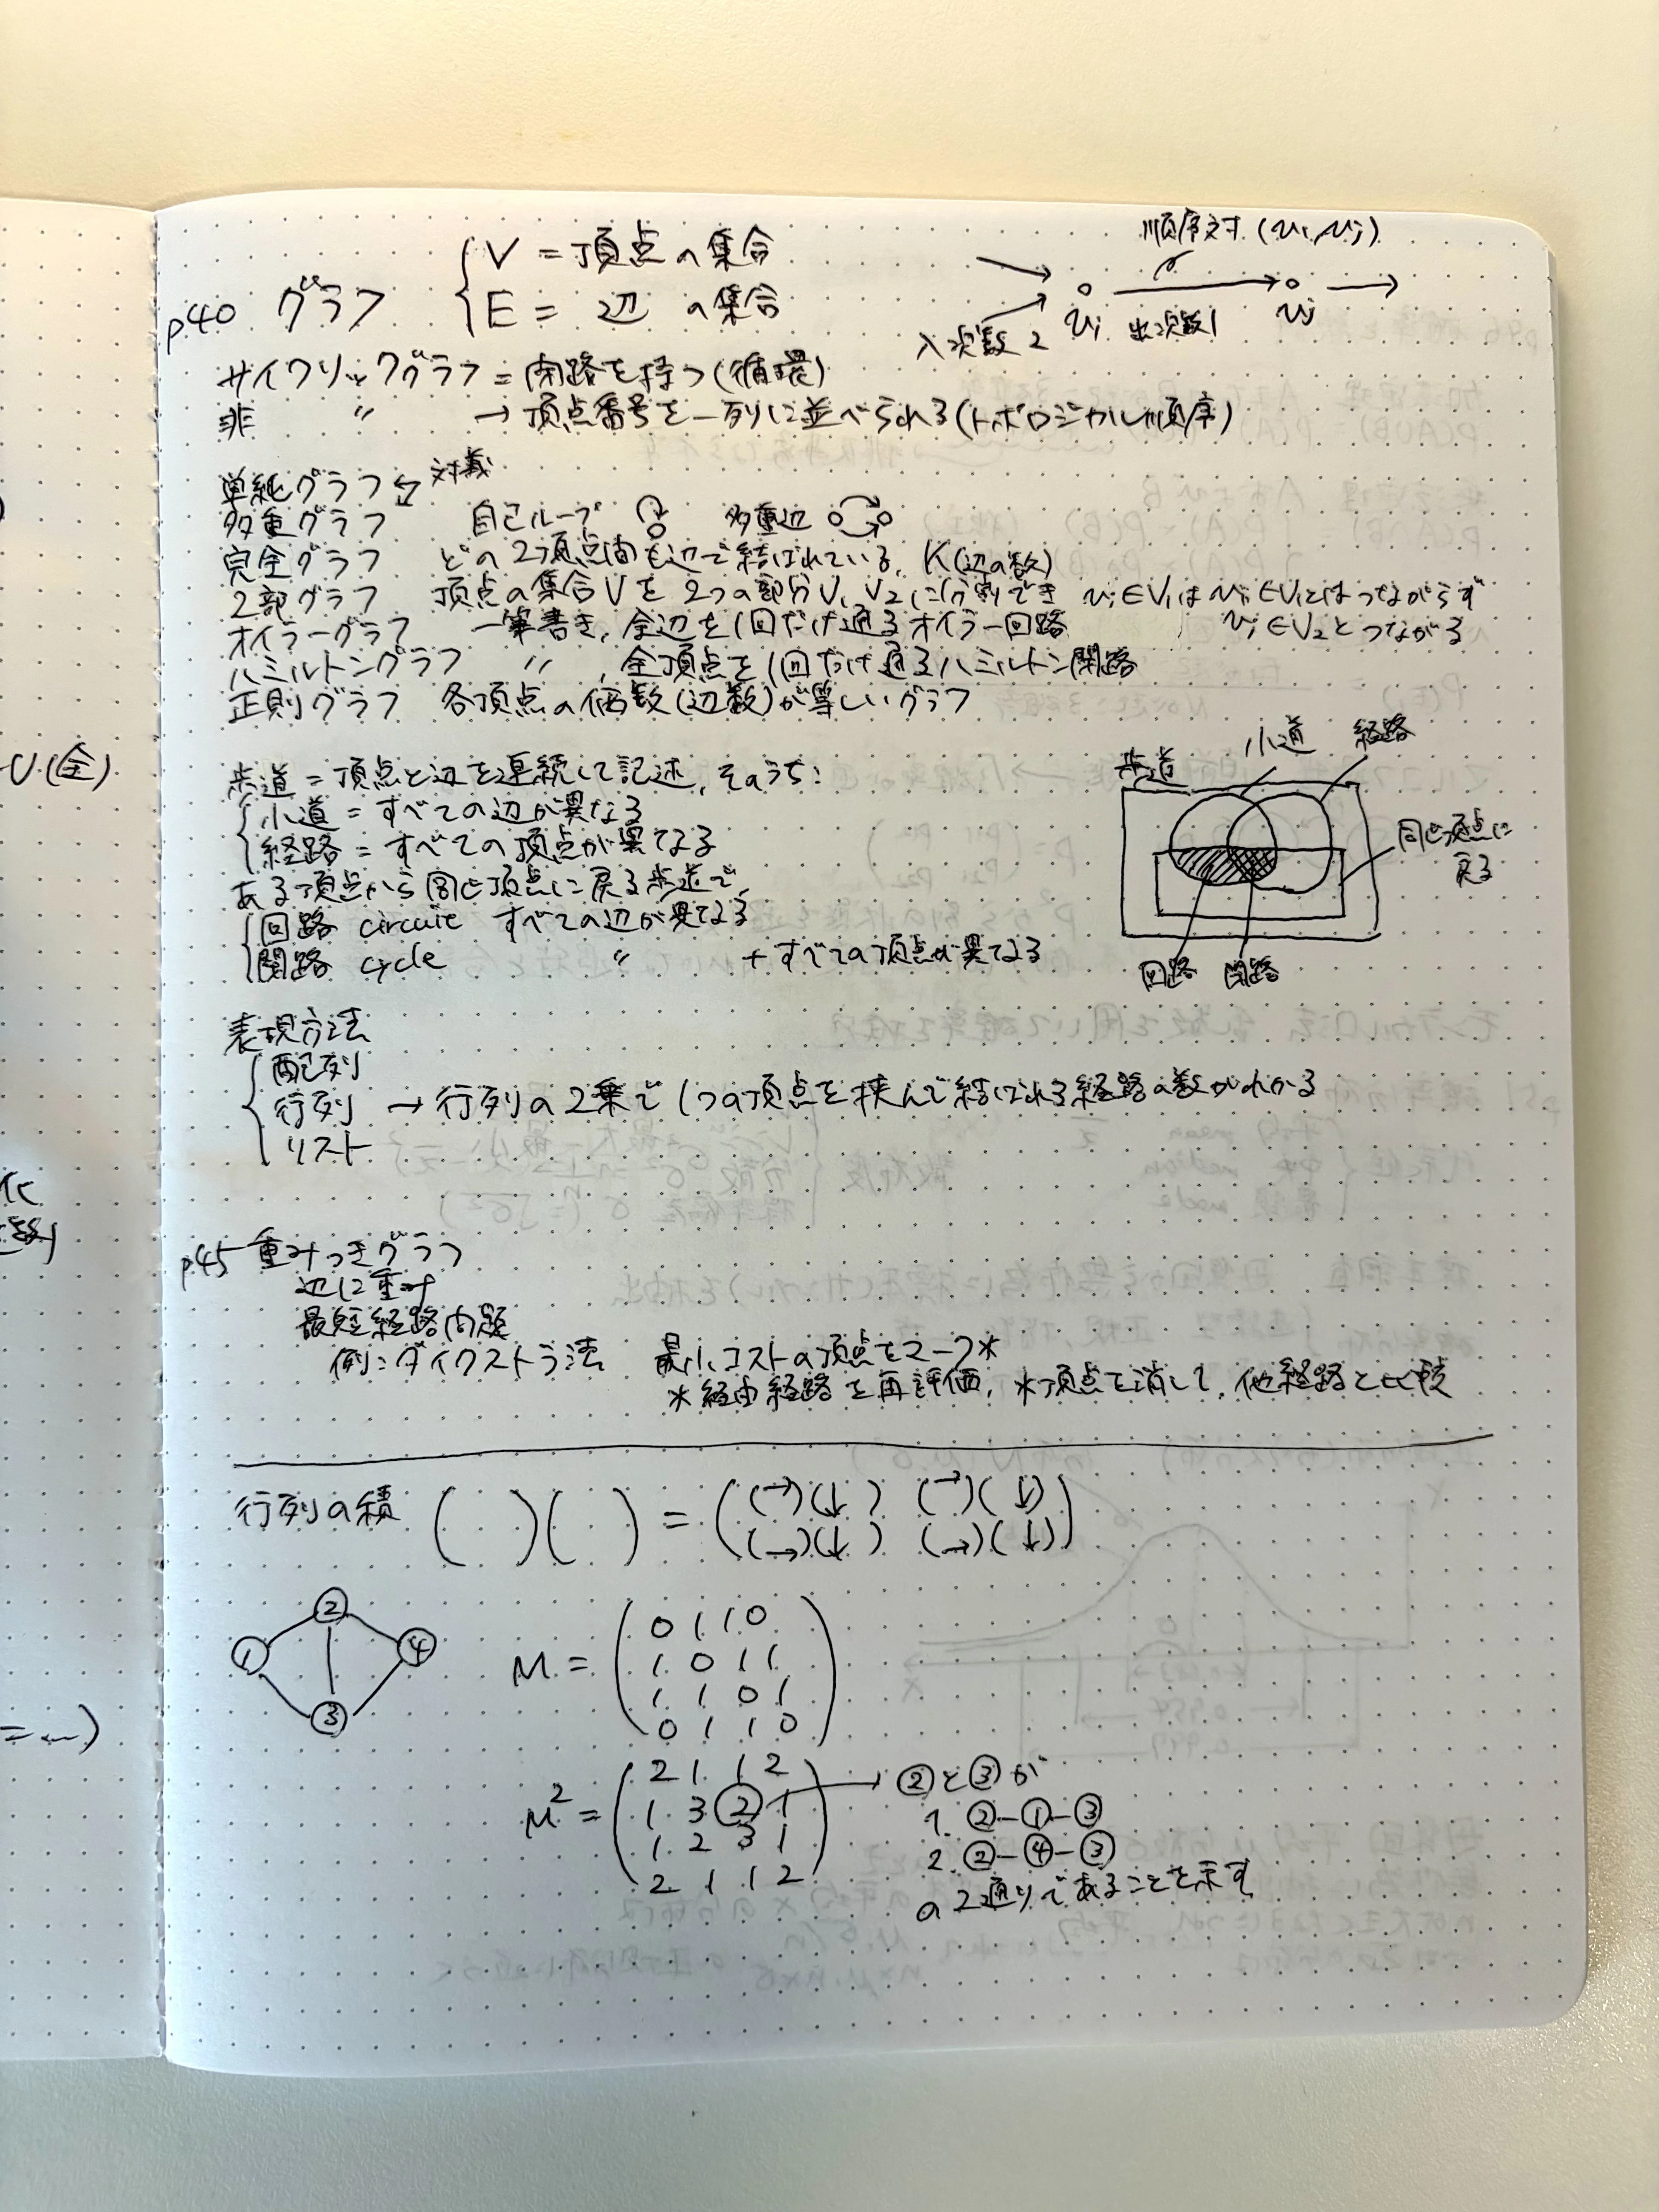 V = 頂点の集合
p40 グラフ
E = 辺の集合
順序対 (vi, vj)
入次数 2 vi 出次数1 vj
サイクリックグラフ = 閉路を持つ(循環)
非 〃 → 頂点番号を一列に並べられる(トポロジカル順序)
単純グラフ 対義
多重グラフ 自己ループ 多重辺
完全グラフ どの2頂点間も辺で結ばれている, K(辺の数)
2部グラフ 頂点の集合Vを2つの部分V1, V2に分割でき vi∈V1はvj∈V1とはつながらず
vj∈V2とつながる
オイラーグラフ 一筆書き, 全辺を1回だけ通るオイラー回路
ハミルトングラフ 〃 , 全頂点を1回だけ通るハミルトン閉路
正則グラフ 各頂点の個数(辺数)が等しいグラフ
歩道 = 頂点と辺を連続して記述, そのうち:
小道 = すべての辺が異なる
経路 = すべての頂点が異なる
ある頂点から同じ頂点に戻る歩道で,
回路 circuit すべての辺が異なる
閉路 cycle 〃 + すべての頂点が異なる
歩道 小道 経路
同じ頂点に
戻る
回路 閉路
表現方法
配列
行列 → 行列の2乗で1つの頂点を挟んで結ばれる経路の数がわかる
リスト
p45 重みつきグラフ
辺に重み
最短経路問題
例:ダイクストラ法 最小コストの頂点をマーク*
*経由経路を再評価, *頂点を消して, 他経路と比較
行列の積 ( )( ) = ((→)(↓) (→)(↓)
(→)(↓) (→)(↓))
② ① ④ ③
M = (0 1 1 0
1 0 1 1
1 1 0 1
0 1 1 0)
M² = (2 1 1 2
1 3 ② 1
1 2 3 1
2 1 1 2)
→ ②と③が
1. ②-①-③
2. ②-④-③
の2通りであることを示す
U(全)
化